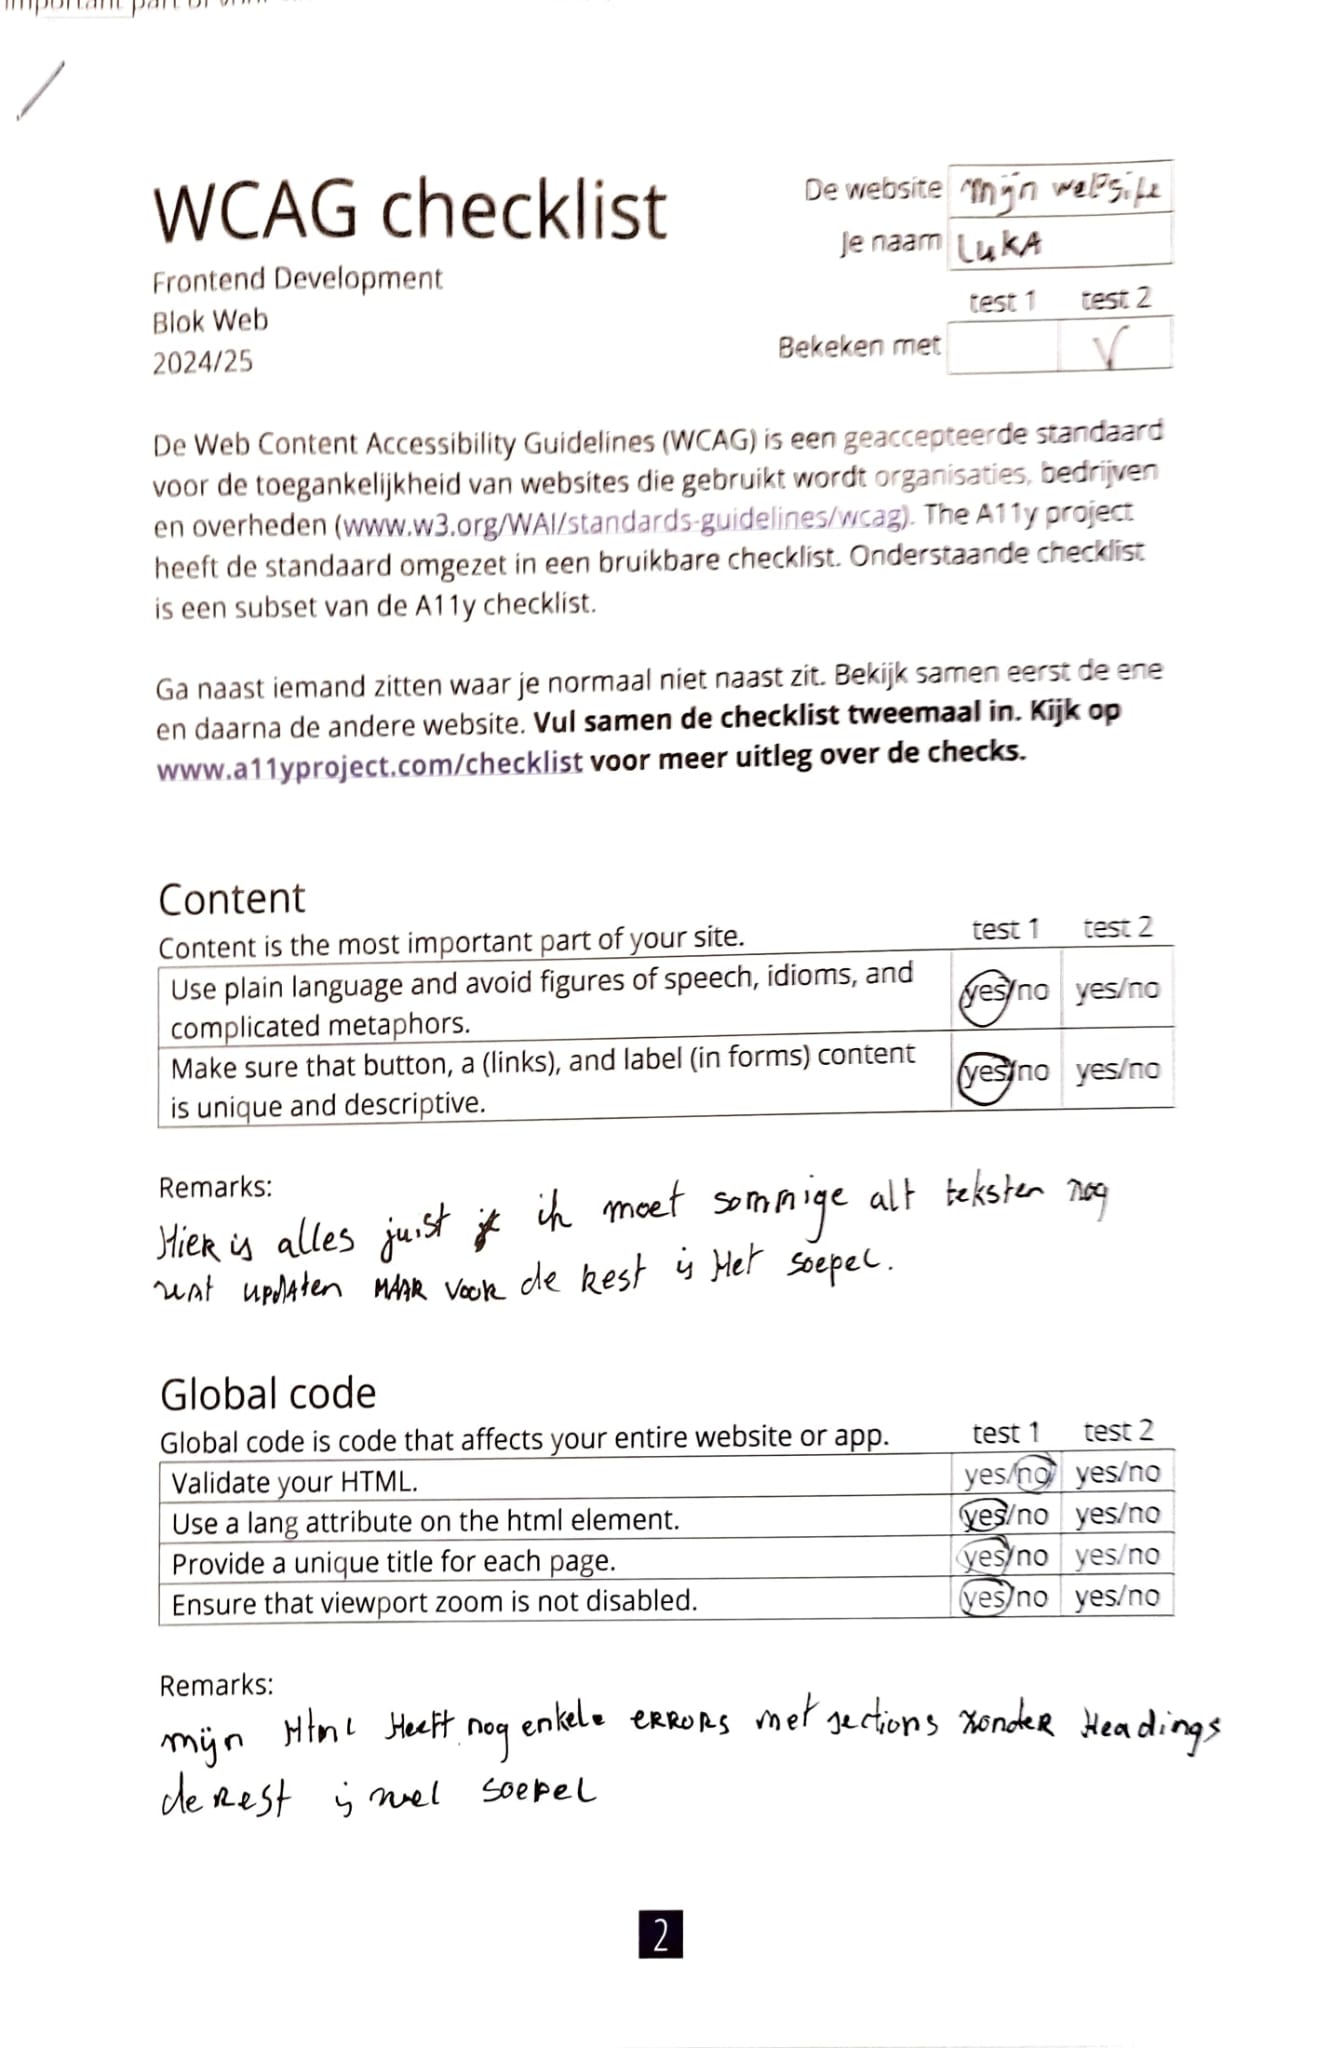 important part of
WCAG checklist
Frontend Development
Blok Web
2024/25
De website mijn website
Je naam LukA
test 1 test 2
Bekeken met V
De Web Content Accessibility Guidelines (WCAG) is een geaccepteerde standaard
voor de toegankelijkheid van websites die gebruikt wordt organisaties, bedrijven
en overheden (www.w3.org/WAI/standards-guidelines/wcag). The A11y project
heeft de standaard omgezet in een bruikbare checklist. Onderstaande checklist
is een subset van de A11y checklist.
Ga naast iemand zitten waar je normaal niet naast zit. Bekijk samen eerst de ene
en daarna de andere website. Vul samen de checklist tweemaal in. Kijk op
www.a11yproject.com/checklist voor meer uitleg over de checks.
Content
Content is the most important part of your site. test 1 test 2
Use plain language and avoid figures of speech, idioms, and
complicated metaphors. yes/no yes/no
Make sure that button, a (links), and label (in forms) content
is unique and descriptive. yes/no yes/no
Remarks:
Hier is alles juist ik moet sommige alt teksten nog
updaten MAAR voor de rest is Het soepel.
Global code
Global code is code that affects your entire website or app. test 1 test 2
Validate your HTML. yes/no yes/no
Use a lang attribute on the html element. yes/no yes/no
Provide a unique title for each page. yes/no yes/no
Ensure that viewport zoom is not disabled. yes/no yes/no
Remarks:
mijn Html Heeft nog enkele ERRORS met sections zonder Headings
de Rest is wel soepel
2